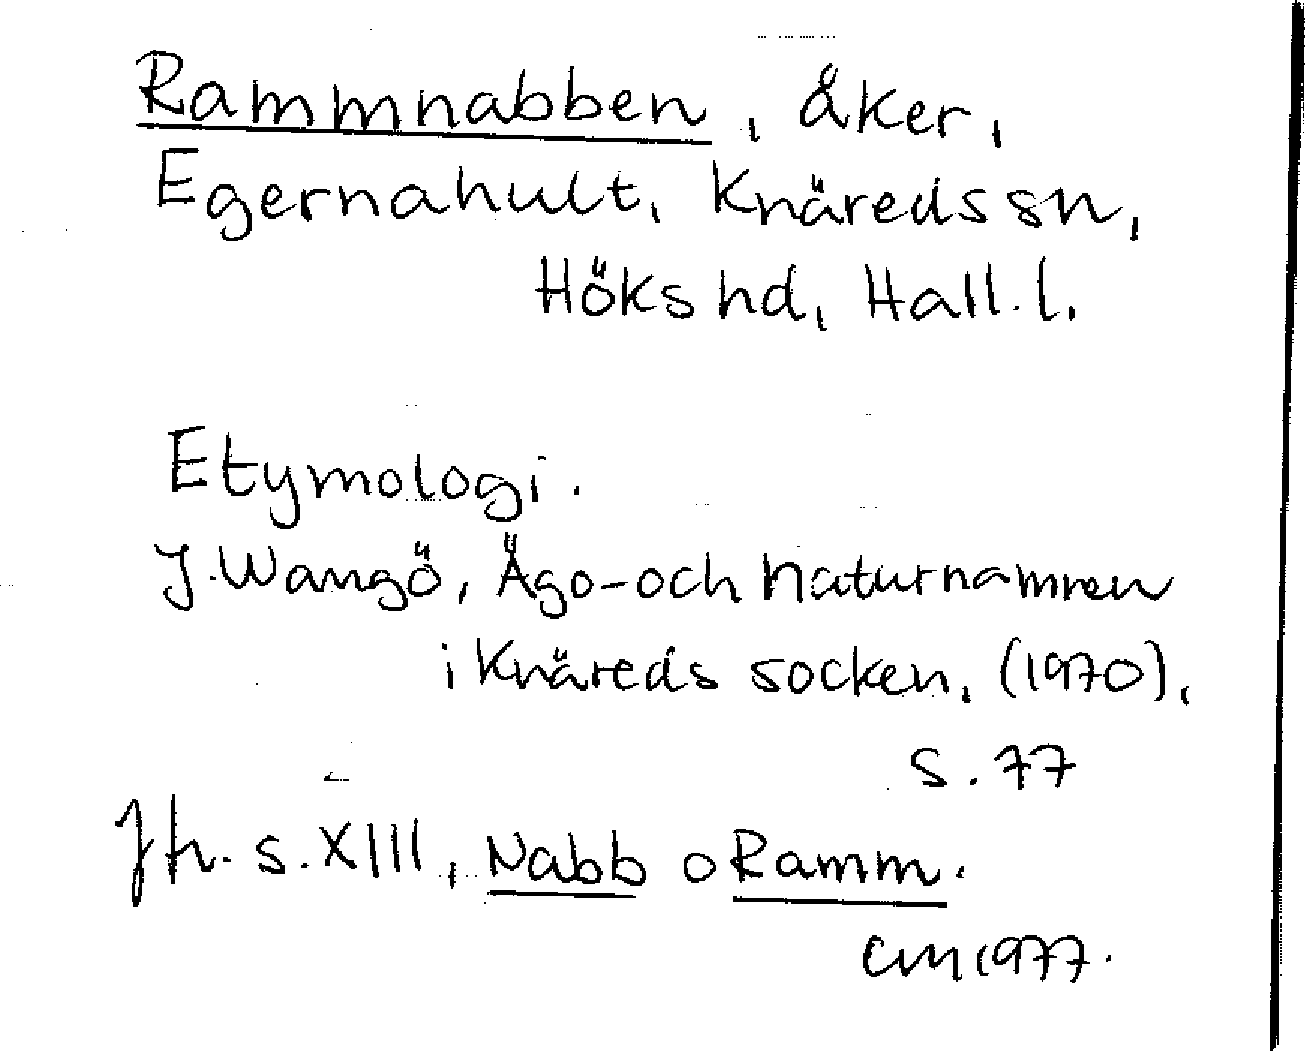 Rammnabben, åker,
Egernahult, Knäreds sn,
Höks hd, Hall. l.
Etymologi.
J. Wangö, Ägo- och naturnamnen
i Knäreds socken, (1970),
s. 77
Jfr. s. XIII, Nabb o Ramm.
CM 1977.